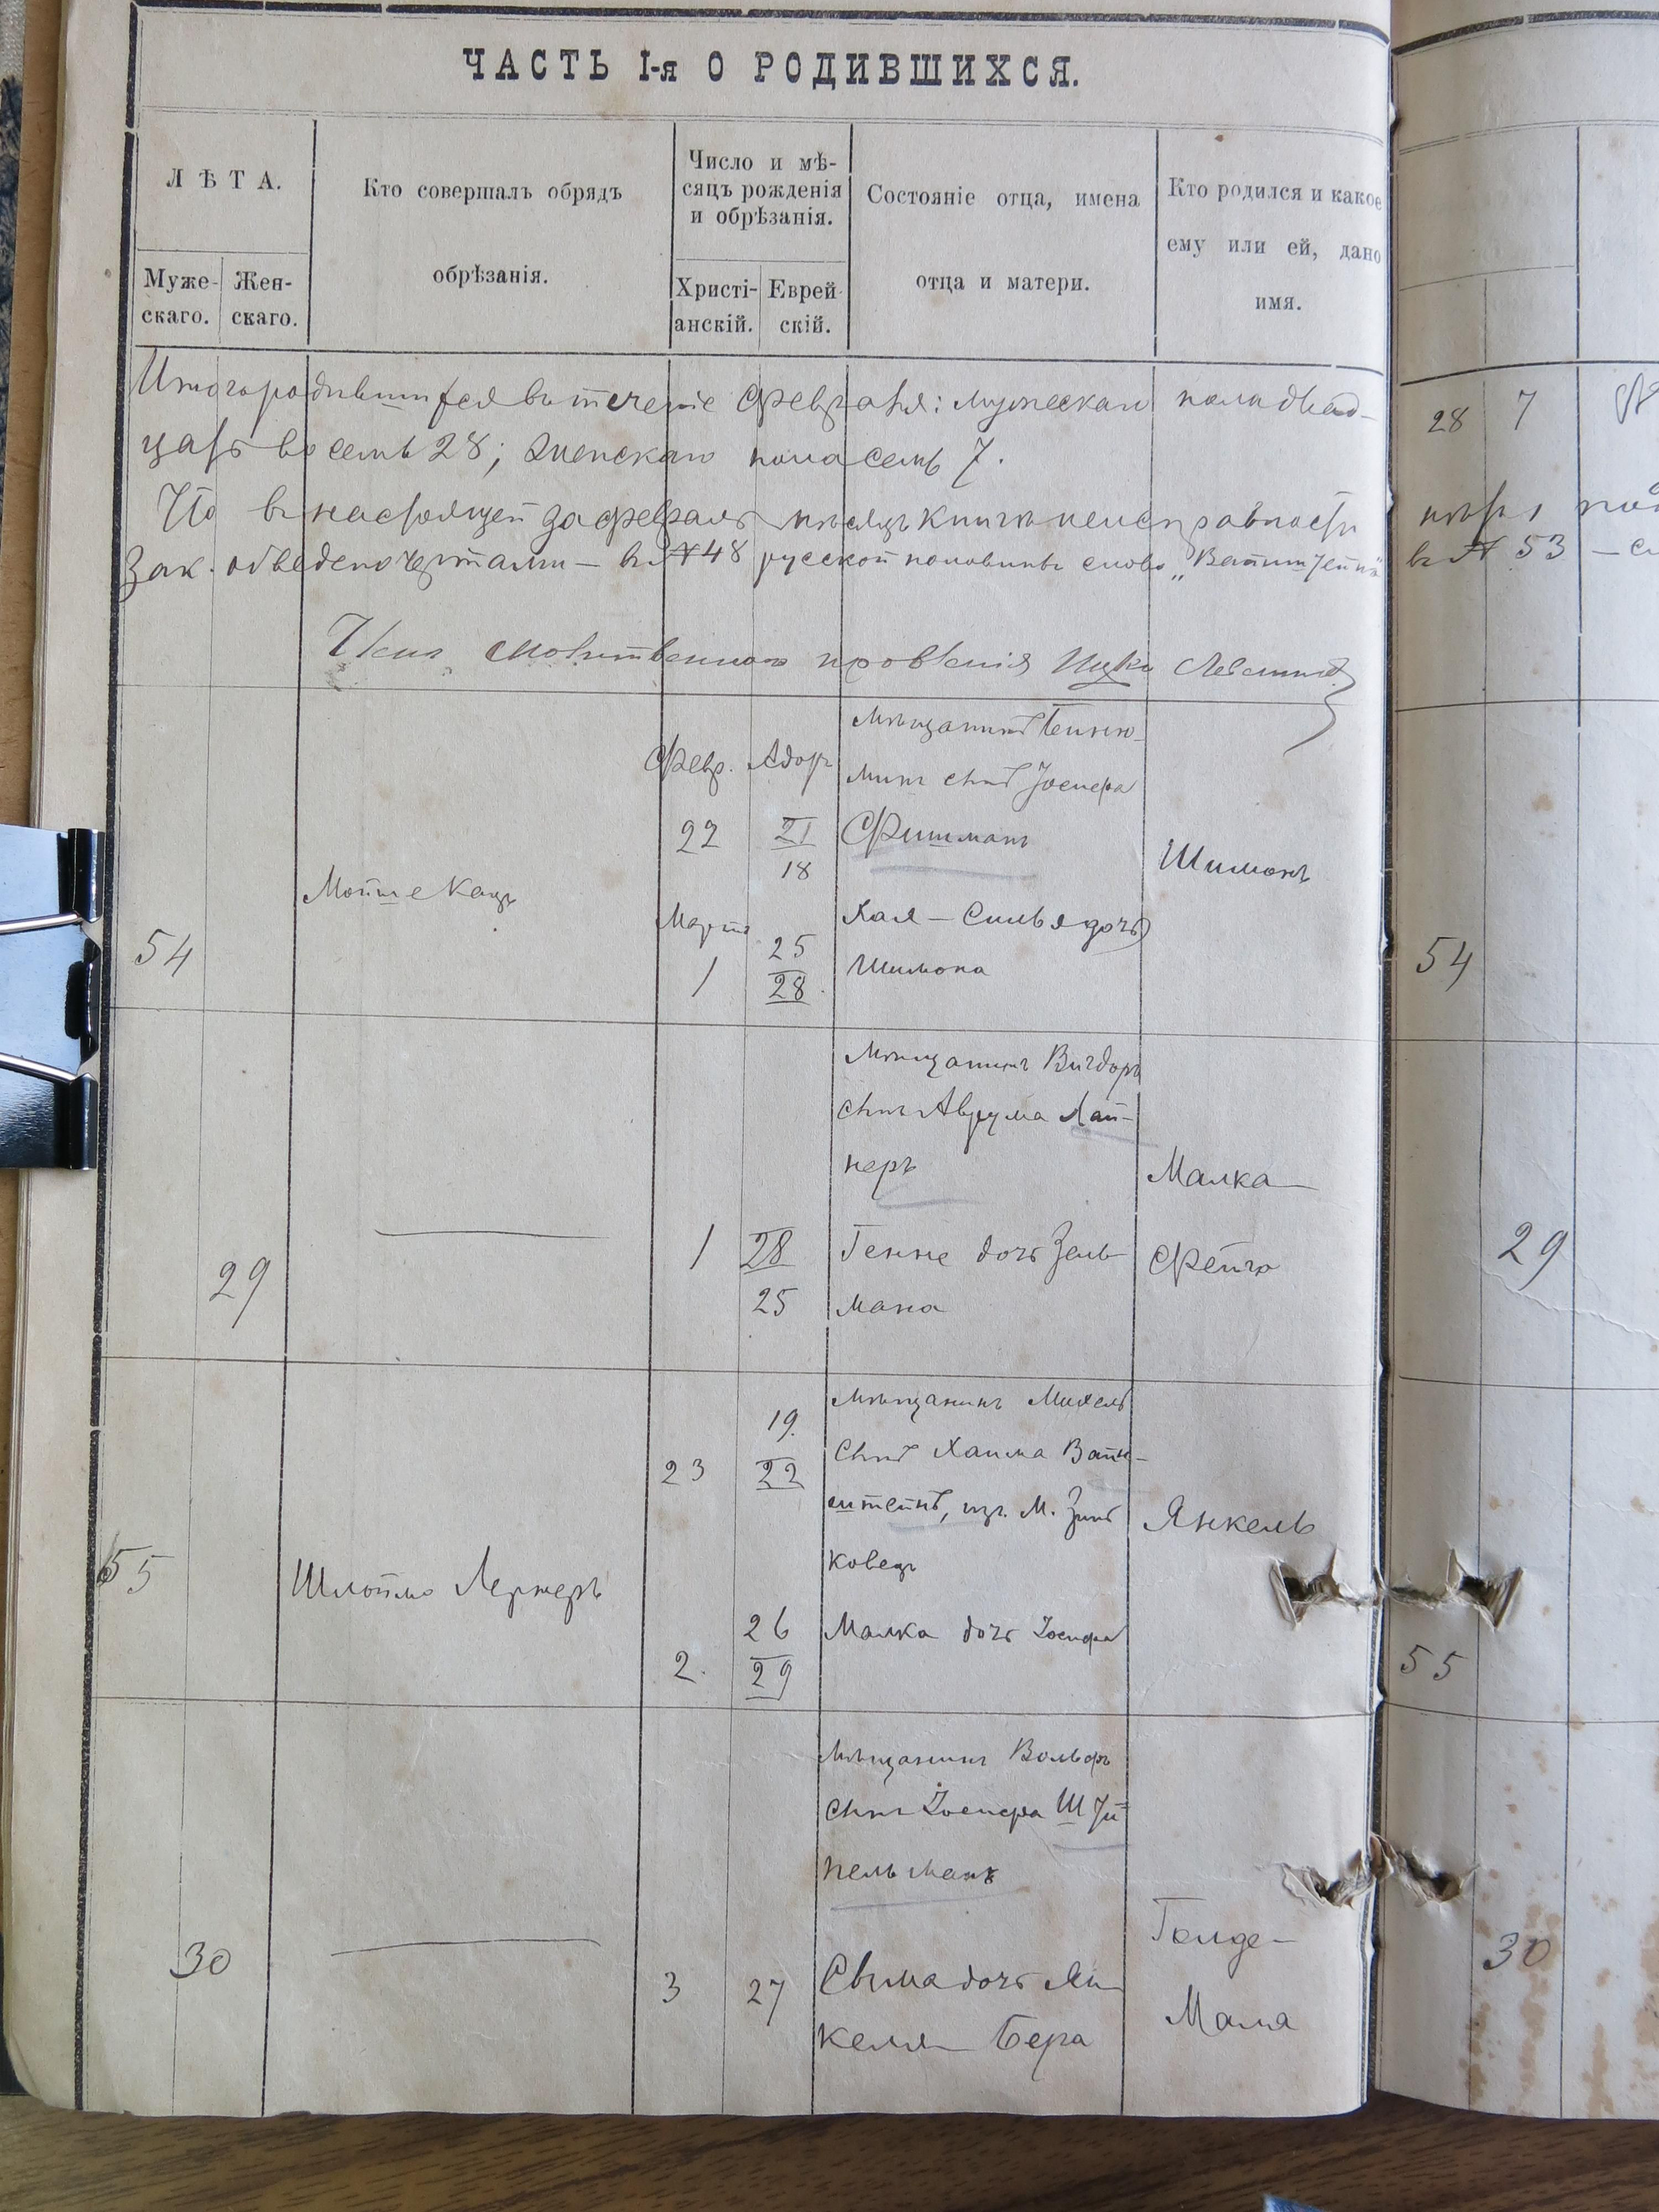 ЧАСТЬ I-я О РОДИВШИХСЯ.
ЛѢТА.
Муже-
скаго.
Жен-
скаго.
Кто совершалъ обрядъ
обрѣзанія.
Число и мѣ-
сяцъ рожденія
и обрѣзанія.
Христі-
анскій.
Еврей
скій.
Состояніе отца, имена
отца и матери.
Кто родился и какое
ему или ей, дано
имя.
Итого родившихся въ теченіе февраля: мужескаго пола двад-
цать восемь 28; женскаго пола семь 7.
Что въ настоящей за февраль мѣсяцъ книгѣ неисправности
Зак. обведено чертами – въ № 48 русской половинѣ слово „Вайнштейнъ"
Членъ молитвенного правленія Ицко
28 7
нѣтъ,
въ № 53 –
54
Мойше Кацъ
Февр. Адоръ
22 21
18
Мартъ
1 25
28
Мѣщанинъ Беніо-
минъ сынъ Іосифа
Фишманъ
Хая – Сивья дочь
Шимона
Шимонъ
54
29
1 28
25
Мѣщанинъ Вигдоръ
сынъ Аврума Лай-
неръ
Генне дочь Зель-
мана
Малка
Фейга
29
55
Шлойма Лернеръ
23 19.
22
2. 26
29
Мѣщанинъ Михель
сынъ Хаима Вайн-
штейнъ, изъ м. Зинь
ковецъ
Малка дочь Іосифа
Янкель
55
30
3 27
Мѣщанинъ Вольфъ
сынъ Іосифа
пельманъ
Сыма дочь Ян
келя Бера
Голде –
Маля
30